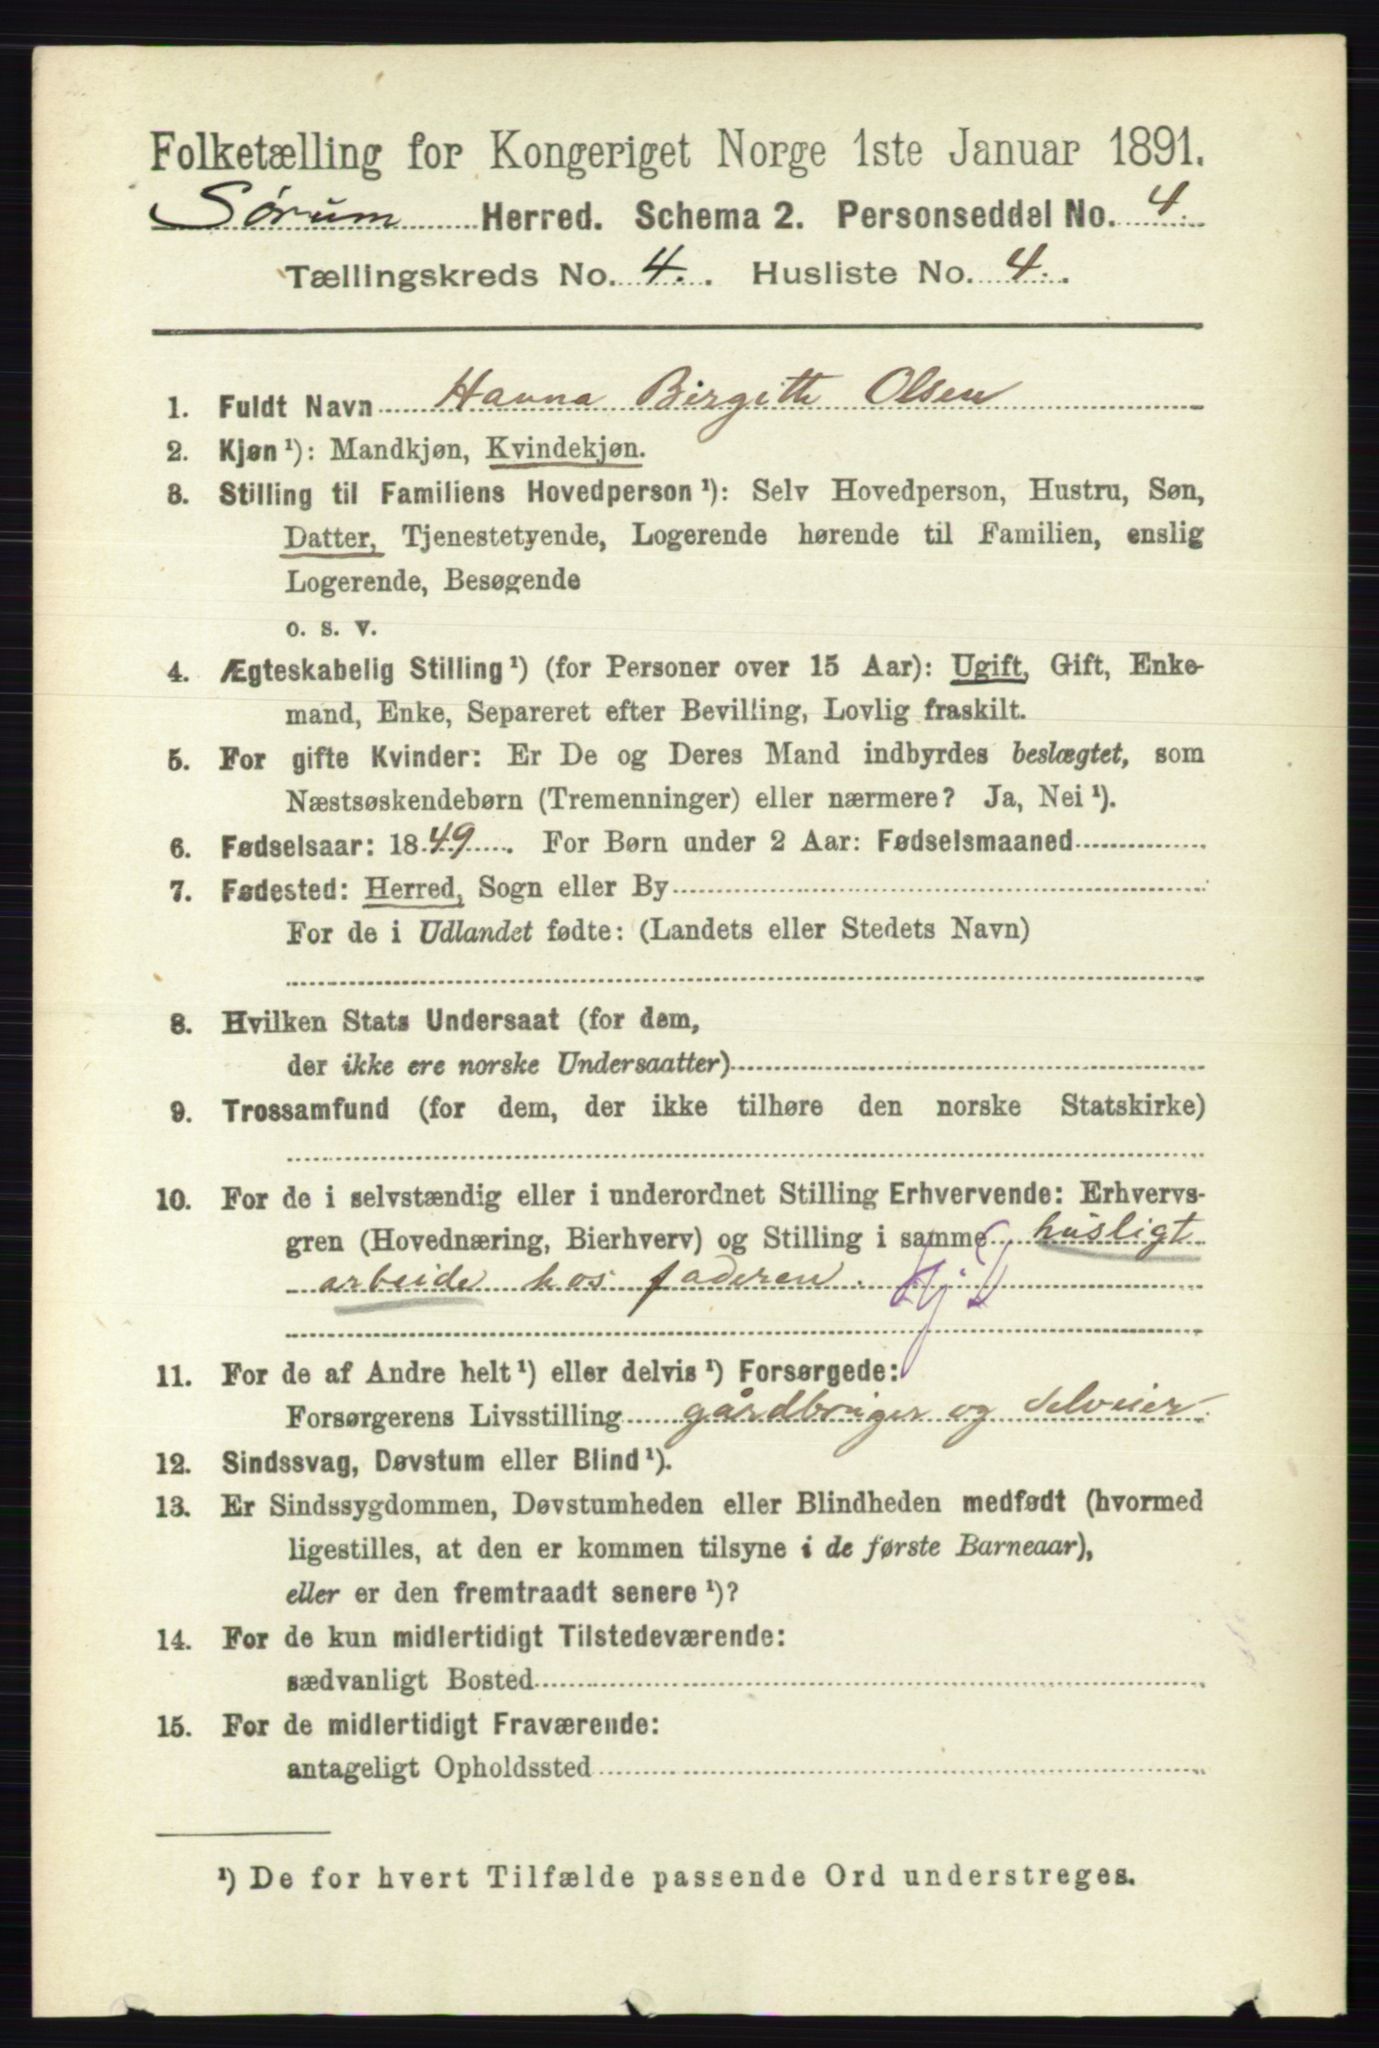 Folketælling for Kongeriget Norge 1ste Januar 1891.
Sørum Herred. Schema 2. Personseddel No. 4.
Tællingskreds No. 4. Husliste No. 4.
1. Fuldt Navn Hanna Birgitte Olsen
2. Kjøn¹): Mandkjøn, Kvindekjøn.
3. Stilling til Familiens Hovedperson¹): Selv Hovedperson, Hustru, Søn,
Datter, Tjenestetyende, Logerende hørende til Familien, enslig
Logerende, Besøgende
o. s. v.
4. Ægteskabelig Stilling¹) (for Personer over 15 Aar): Ugift, Gift, Enke-
mand, Enke, Separeret efter Bevilling, Lovlig fraskilt.
5. For gifte Kvinder: Er De og Deres Mand indbyrdes beslægtet, som
Næstsøskendebørn (Tremenninger) eller nærmere? Ja, Nei¹).
6. Fødselsaar: 1849. For Børn under 2 Aar: Fødselsmaaned
7. Fødested: Herred, Sogn eller By
For de i Udlandet fødte: (Landets eller Stedets Navn)
8. Hvilken Stats Undersaat (for dem,
der ikke ere norske Undersaatter)
9. Trossamfund (for dem, der ikke tilhøre den norske Statskirke)
10. For de i selvstændig eller i underordnet Stilling Erhvervende: Erhvervs-
gren (Hovednæring, Bierhverv) og Stilling i samme husligt
arbeide hos faderen.
11. For de af Andre helt¹) eller delvis¹) Forsørgede:
Forsørgerens Livsstilling gårdbruger og selveier
12. Sindssvag, Døvstum eller Blind¹).
13. Er Sindssygdommen, Døvstumheden eller Blindheden medfødt (hvormed
ligestilles, at den er kommen tilsyne i de første Barneaar),
eller er den fremtraadt senere¹)?
14. For de kun midlertidigt Tilstedeværende:
sædvanligt Bosted
15. For de midlertidigt Fraværende:
antageligt Opholdssted
¹) De for hvert Tilfælde passende Ord understreges.